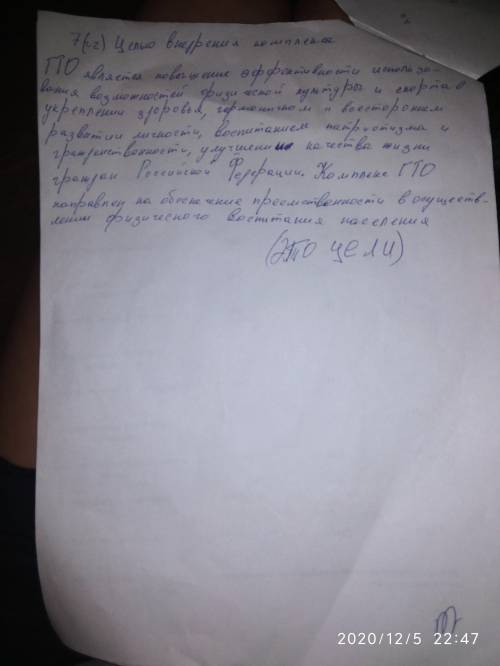 Целью внедрения комплекса
ГТО является повышение эффективности использо-
вания возможностей физической культуры и спорта в
укреплении здоровья, гармоничном и всестороннем
развитии личности, воспитанием патриотизма и
гражданственности, улучшении качества жизни
граждан Российской Федерации. Комплекс ГТО
направлен на обеспечение преемственности в осуществ-
лении физического воспитания населения
(ЭТО ЦЕЛИ)
2020/12/5 22:47